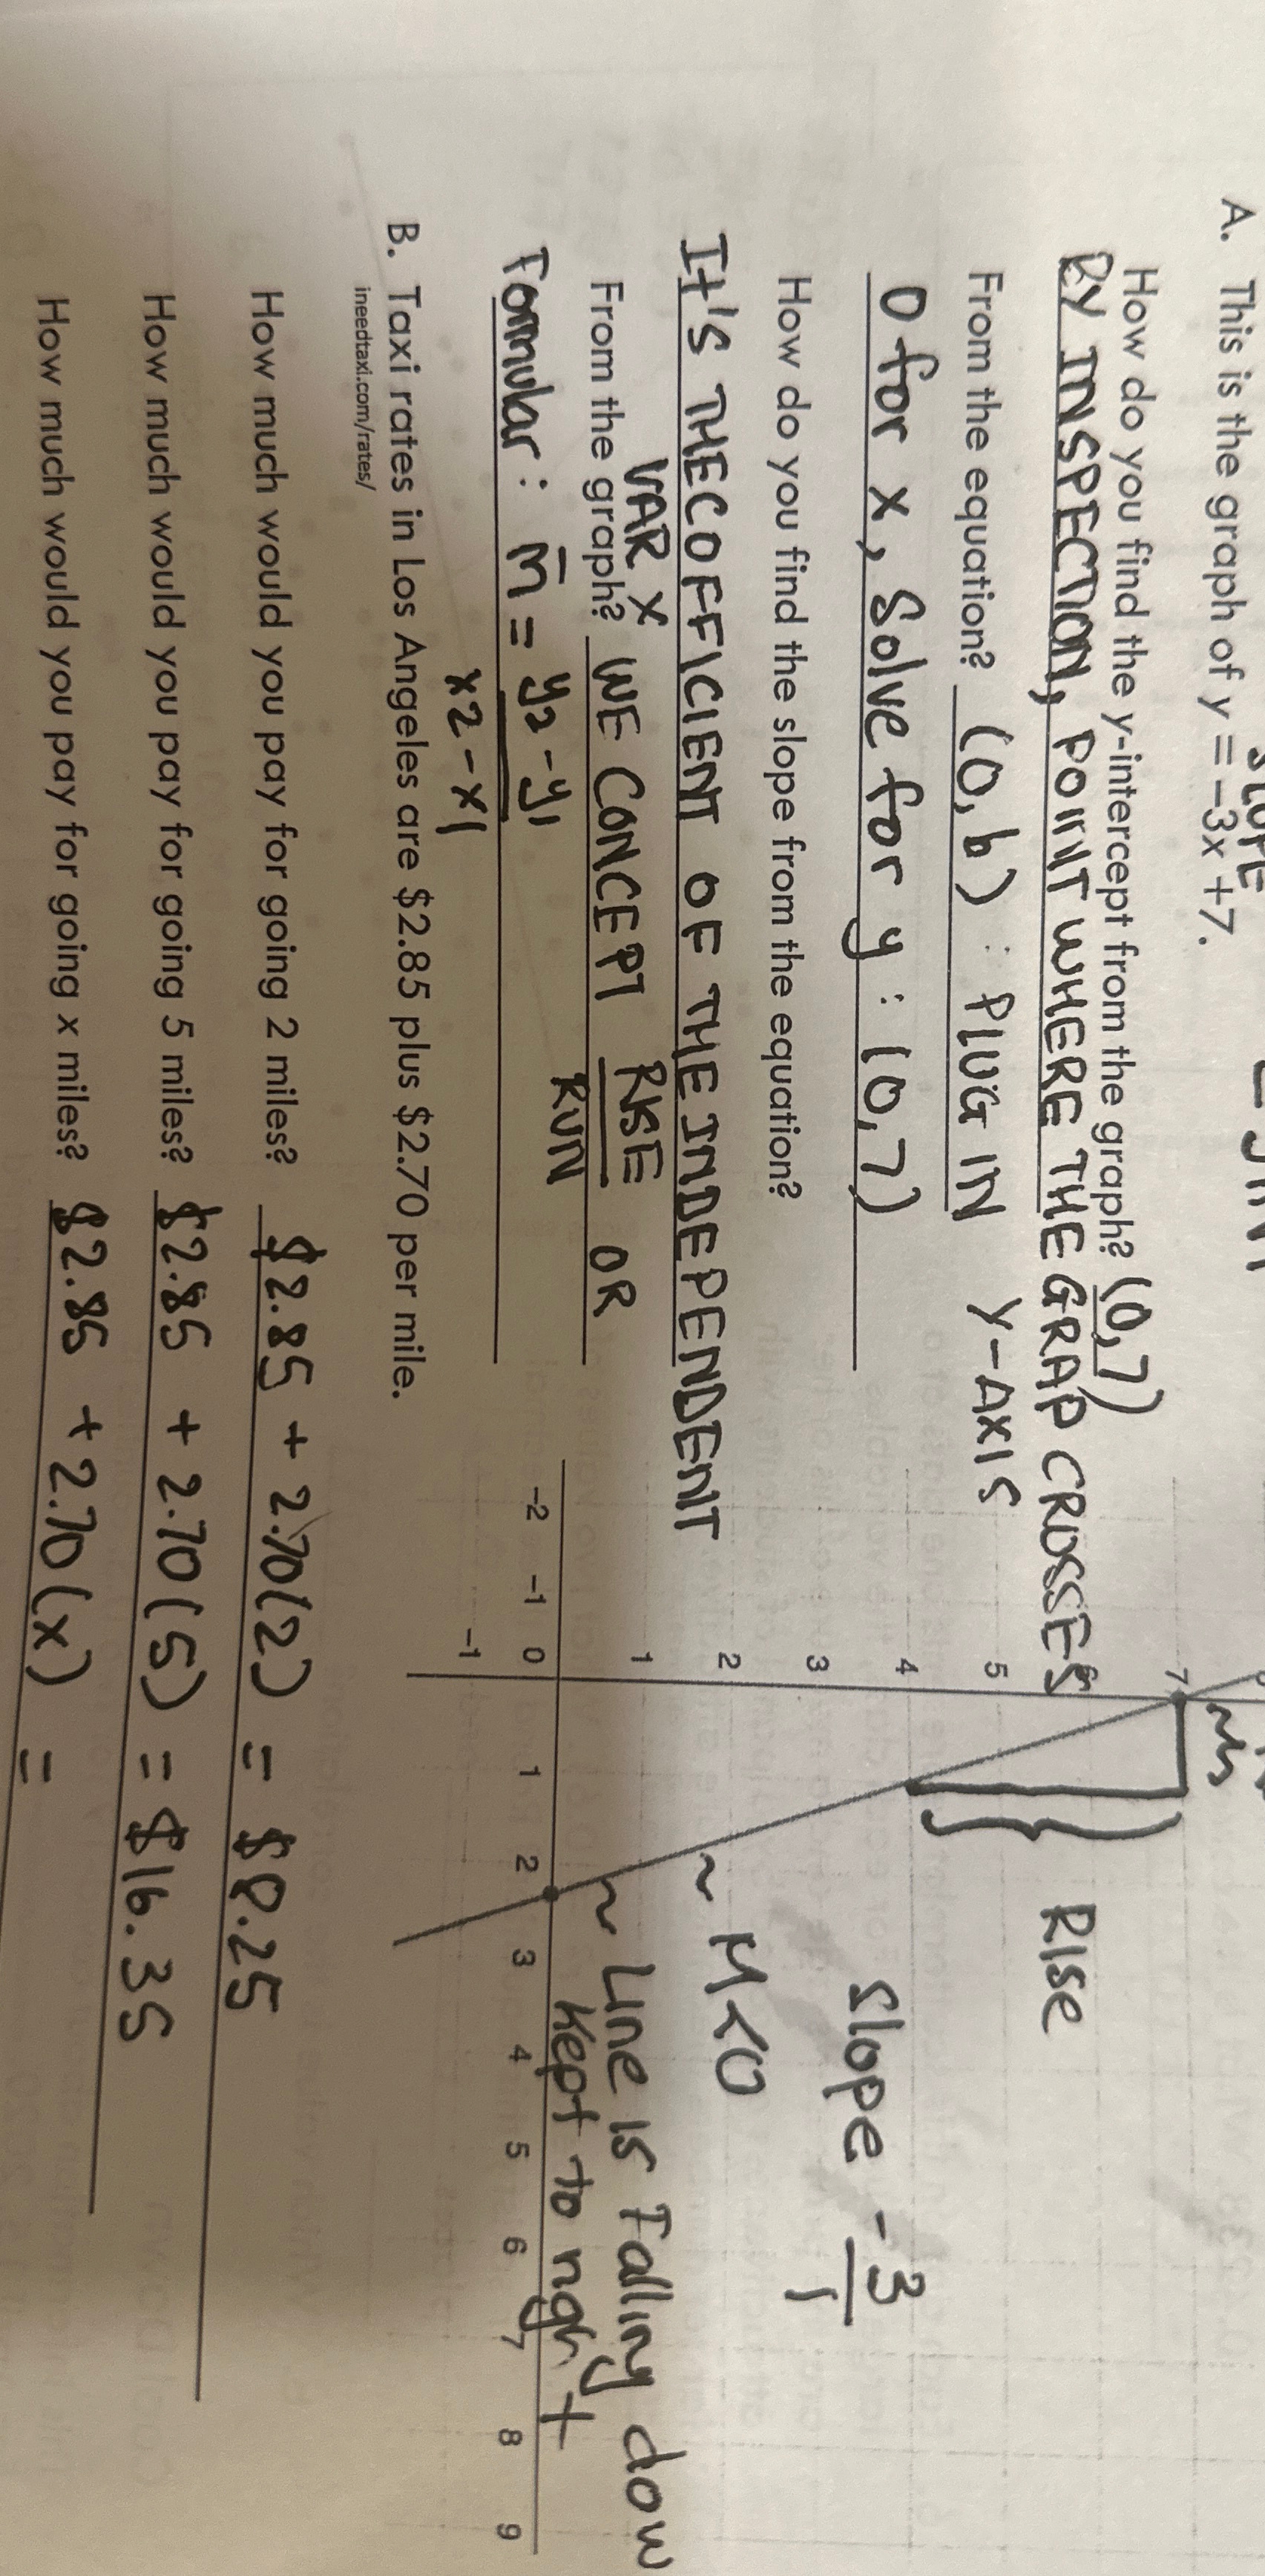 SLOPE
A. This is the graph of y = −3x +7.
How do you find the y-intercept from the graph? (0,7)
BY INSPECTION, POINT WHERE THE GRAP CROSSES
From the equation? (0,b) : PLUG IN Y-AXIS
0 for x, Solve for y : (0,7)
How do you find the slope from the equation?
It's THE COFFICIENT OF THE INDEPENDENT
VAR X
From the graph? WE CONCEPT RISE OR
RUN
Formular : m = y2 - y1
x2 - x1
7
RISE
5
4
Slope - 3
1
3
2
~ M<0
1
~ Line is Falling dow
kept to righ t
-2 -1 0 1 2 3 4 5 6 7 8 9
-1
B. Taxi rates in Los Angeles are $2.85 plus $2.70 per mile.
ineedtaxi.com/rates/
How much would you pay for going 2 miles? $2.85 + 2.70(2) = $8.25
How much would you pay for going 5 miles? $2.85 + 2.70(5) = $16.35
How much would you pay for going x miles? $2.85 + 2.70(x) =